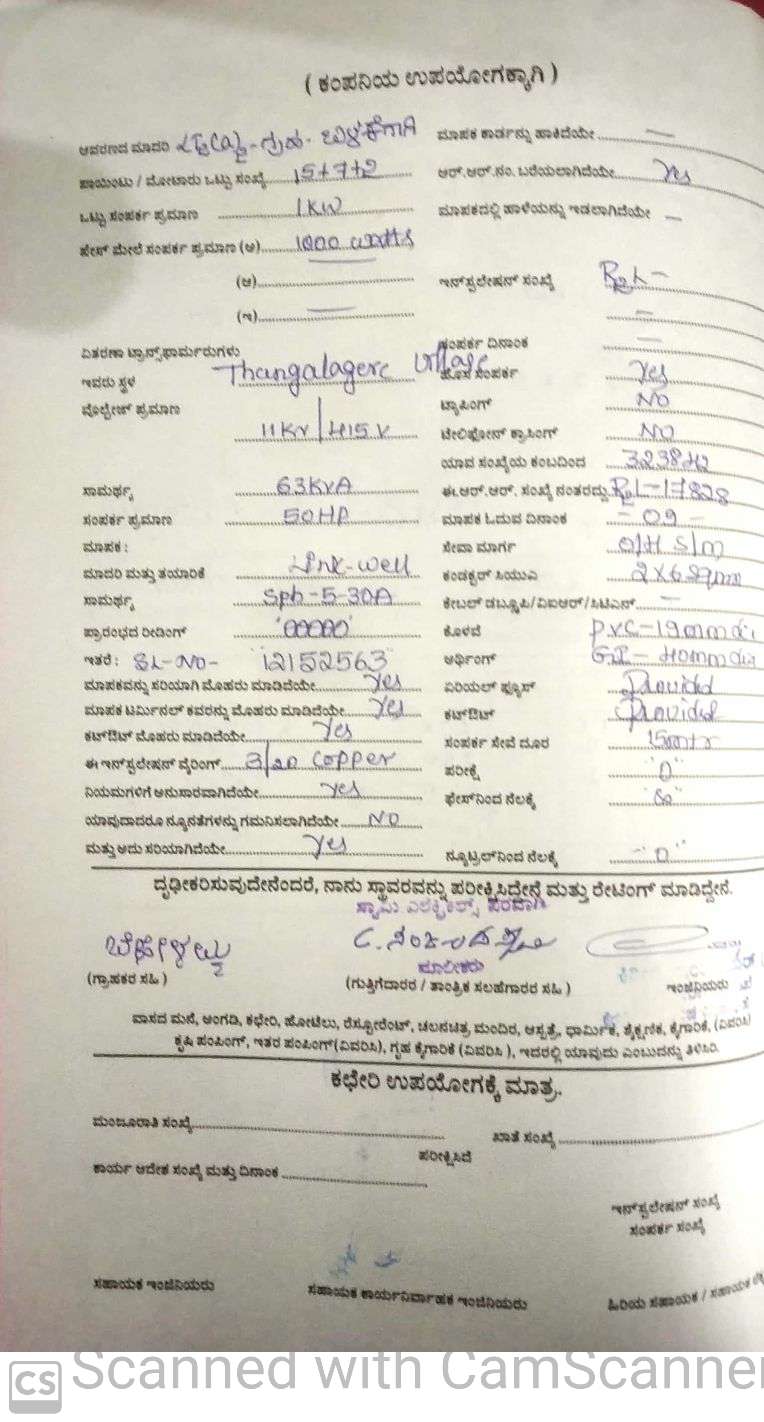 ( ಕಂಪನಿಯ ಉಪಯೋಗಕ್ಕಾಗಿ )
ಆವರಣದ ಮಾದರಿ ಗೃಹ ಬಳಕೆಗಾಗಿ ಮಾಪಕ ಕಾರ್ಡನ್ನು ಹಾಕಿದೆಯೇ —
ಪಾಯಿಂಟು / ಮೋಟಾರು ಒಟ್ಟು ಸಂಖ್ಯೆ 15+7+2 ಆರ್.ಆರ್.ನಂ. ಬರೆಯಲಾಗಿದೆಯೇ Yes
ಒಟ್ಟು ಸಂಪರ್ಕ ಪ್ರಮಾಣ 1KW ಮಾಪಕದಲ್ಲಿ ಹಾಳೆಯನ್ನು ಇಡಲಾಗಿದೆಯೇ —
ಫೇಸ್ ಮೇಲೆ ಸಂಪರ್ಕ ಪ್ರಮಾಣ (ಅ) 1000 watts
(ಆ) — ಇನ್‌ಸ್ಟಲೇಷನ್ ಸಂಖ್ಯೆ RgL-
(ಇ) — —
ವಿತರಣಾ ಟ್ರಾನ್ಸ್‌ಫಾರ್ಮರುಗಳು ಸಂಪರ್ಕ ದಿನಾಂಕ —
ಇವರು ಸ್ಥಳ Thangalagere Village ಹೊಸ ಸಂಪರ್ಕ Yes
ವೊಲ್ಟೇಜ್ ಪ್ರಮಾಣ 11KV/415V ಟ್ಯಾಪಿಂಗ್ NO
ಟೇಲಿಫೋನ್ ಕ್ರಾಸಿಂಗ್ NO
ಯಾವ ಸಂಖ್ಯೆಯ ಕಂಬದಿಂದ
ಸಾಮರ್ಥ್ಯ 63KVA ಈ.ಆರ್.ಆರ್. ಸಂಖ್ಯೆ ನಂತರದ್ದು RgL-17828
ಸಂಪರ್ಕ ಪ್ರಮಾಣ 50HP ಮಾಪಕ ಓದುವ ದಿನಾಂಕ - 09 -
ಮಾಪಕ : ಸೇವಾ ಮಾರ್ಗ O/H S/M
ಮಾದರಿ ಮತ್ತು ತಯಾರಿಕೆ Link-well ಕಂಡಕ್ಟರ್ ಸಿಯುಎ 2x6sqmm
ಸಾಮರ್ಥ್ಯ Sph-5-30A ಕೇಬಲ್ ಡಬ್ಲ್ಯೂಪಿ/ವಿಐಆರ್/ಸಿಟಿಎನ್ —
ಪ್ರಾರಂಭದ ರೀಡಿಂಗ್ '00000' ಕೊಳವೆ PVC-19mm dia
ಇತರೆ : SL-NO- 12152563 ಅರ್ಥಿಂಗ್ GI- 40mm dia
ಮಾಪಕವನ್ನು ಸರಿಯಾಗಿ ಮೊಹರು ಮಾಡಿದೆಯೇ Yes ಏರಿಯಲ್ ಫ್ಯೂಸ್ Provided
ಮಾಪಕ ಟರ್ಮಿನಲ್ ಕವರನ್ನು ಮೊಹರು ಮಾಡಿದೆಯೇ Yes ಕಟ್‌ಔಟ್ Provided
ಕಟ್‌ಔಟ್ ಮೊಹರು ಮಾಡಿದೆಯೇ Yes ಸಂಪರ್ಕ ಸೇವೆ ದೂರ 15mtr
ಈ ಇನ್‌ಸ್ಟಲೇಷನ್ ವೈರಿಂಗ್ 3/20 Copper ಪರೀಕ್ಷೆ "0"
ನಿಯಮಗಳಿಗೆ ಅನುಸಾರವಾಗಿದೆಯೇ Yes ಫೇಸ್‌ನಿಂದ ನೆಲಕ್ಕೆ
ಯಾವುದಾದರೂ ನ್ಯೂನತೆಗಳನ್ನು ಗಮನಿಸಲಾಗಿದೆಯೇ NO
ಮತ್ತು ಅದು ಸರಿಯಾಗಿದೆಯೇ Yes ನ್ಯೂಟ್ರಲ್‌ನಿಂದ ನೆಲಕ್ಕೆ "0"
ದೃಢೀಕರಿಸುವುದೇನೆಂದರೆ, ನಾನು ಸ್ಥಾವರವನ್ನು ಪರೀಕ್ಷಿಸಿದ್ದೇನೆ ಮತ್ತು ರೇಟಿಂಗ್ ಮಾಡಿದ್ದೇನೆ.
ಸ್ವಾಮಿ ಎಲೆಕ್ಟ್ರಿಕಲ್ಸ್ ಪರವಾಗಿ
ಮಾಲೀಕರು
(ಗ್ರಾಹಕರ ಸಹಿ ) (ಗುತ್ತಿಗೆದಾರರ / ತಾಂತ್ರಿಕ ಸಲಹೆಗಾರರ ಸಹಿ ) ಇಂಜಿನಿಯರು
ವಾಸದ ಮನೆ, ಅಂಗಡಿ, ಕಛೇರಿ, ಹೋಟೆಲು, ರೆಸ್ಟೋರೆಂಟ್, ಚಲನಚಿತ್ರ ಮಂದಿರ, ಆಸ್ಪತ್ರೆ, ಧಾರ್ಮಿಕ, ಶೈಕ್ಷಣಿಕ, ಕೈಗಾರಿಕೆ, (ವಿವರಿಸಿ)
ಕೃಷಿ ಪಂಪಿಂಗ್, ಇತರ ಪಂಪಿಂಗ್(ವಿವರಿಸಿ), ಗೃಹ ಕೈಗಾರಿಕೆ (ವಿವರಿಸಿ ), ಇದರಲ್ಲಿ ಯಾವುದು ಎಂಬುದನ್ನು ತಿಳಿಸಿರಿ.
ಕಛೇರಿ ಉಪಯೋಗಕ್ಕೆ ಮಾತ್ರ.
ಮಂಜೂರಾತಿ ಸಂಖ್ಯೆ ಖಾತೆ ಸಂಖ್ಯೆ
ಪರೀಕ್ಷಿಸಿದೆ
ಕಾರ್ಯ ಆದೇಶ ಸಂಖ್ಯೆ ಮತ್ತು ದಿನಾಂಕ
ಇನ್‌ಸ್ಟಲೇಷನ್ ಸಂಖ್ಯೆ
ಸಂಪರ್ಕ ಸಂಖ್ಯೆ
ಸಹಾಯಕ ಇಂಜಿನಿಯರು ಸಹಾಯಕ ಕಾರ್ಯನಿರ್ವಾಹಕ ಇಂಜಿನಿಯರು ಹಿರಿಯ ಸಹಾಯಕ / ಸಹಾಯಕ
CS Scanned with CamScanner